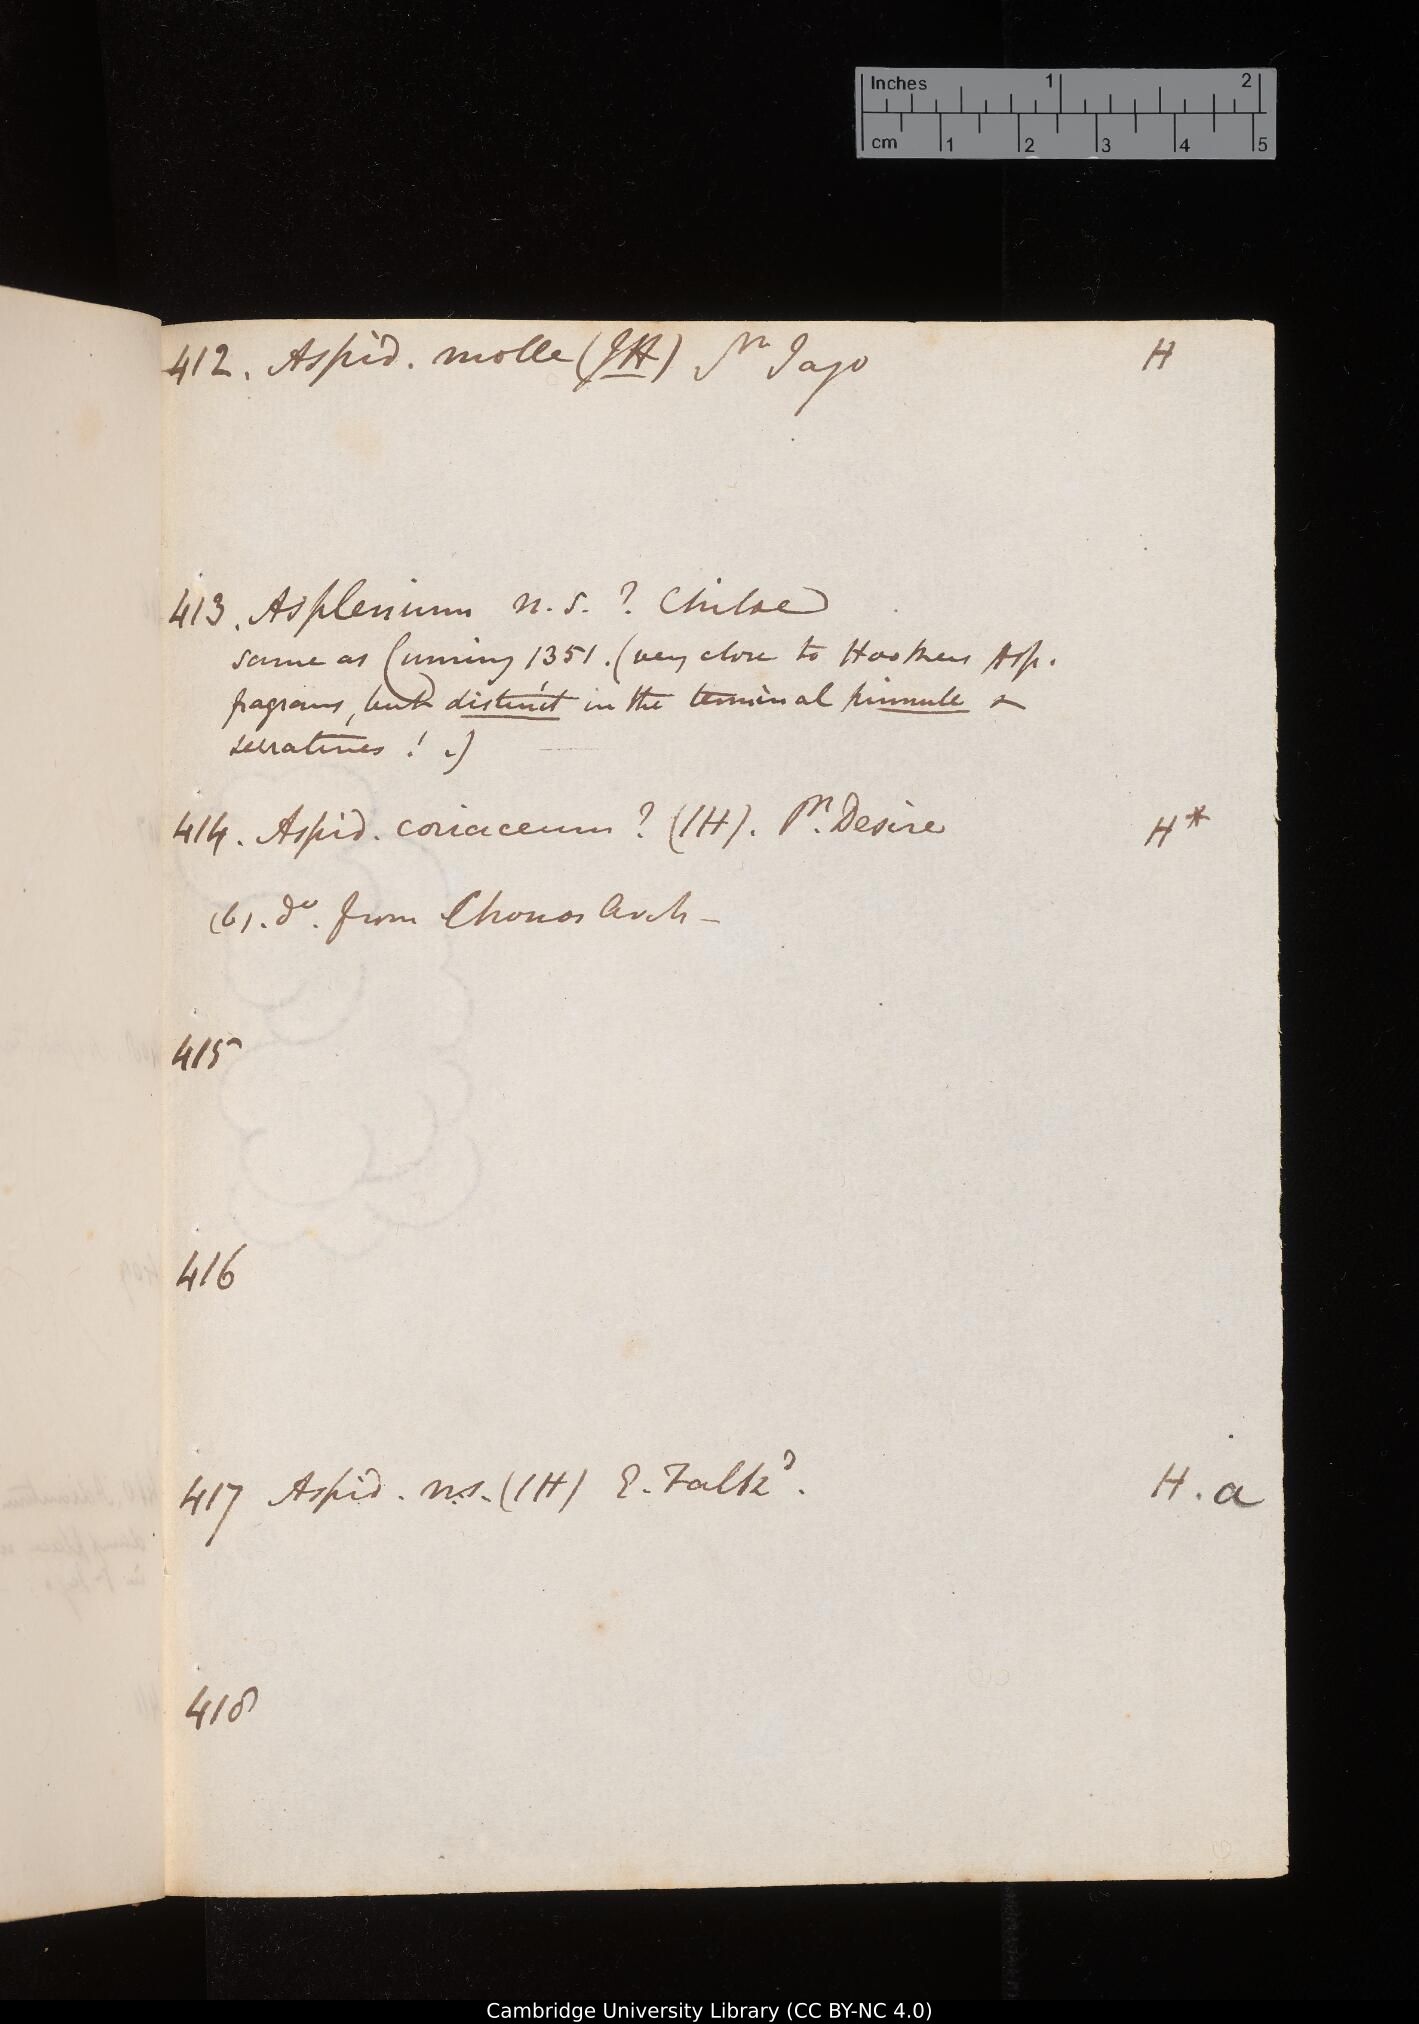 Inches 1 2
cm 1 2 3 4 5
412. Aspid. molle (JH) Sn Jago H
413. Asplenium n.s.? Chiloe
same as Cuming 1351. (very close to Hookers Asp.
fragrans, but distinct in the terminal pinnule &
serratures! .)
414. Aspid. coriaceum? (IH). Pn. Desire H*
(b). do. from Chonos Arch-
415
416
417 Aspid. n.s. (IH) E. Falkd. H. a
418
Cambridge University Library (CC BY-NC 4.0)